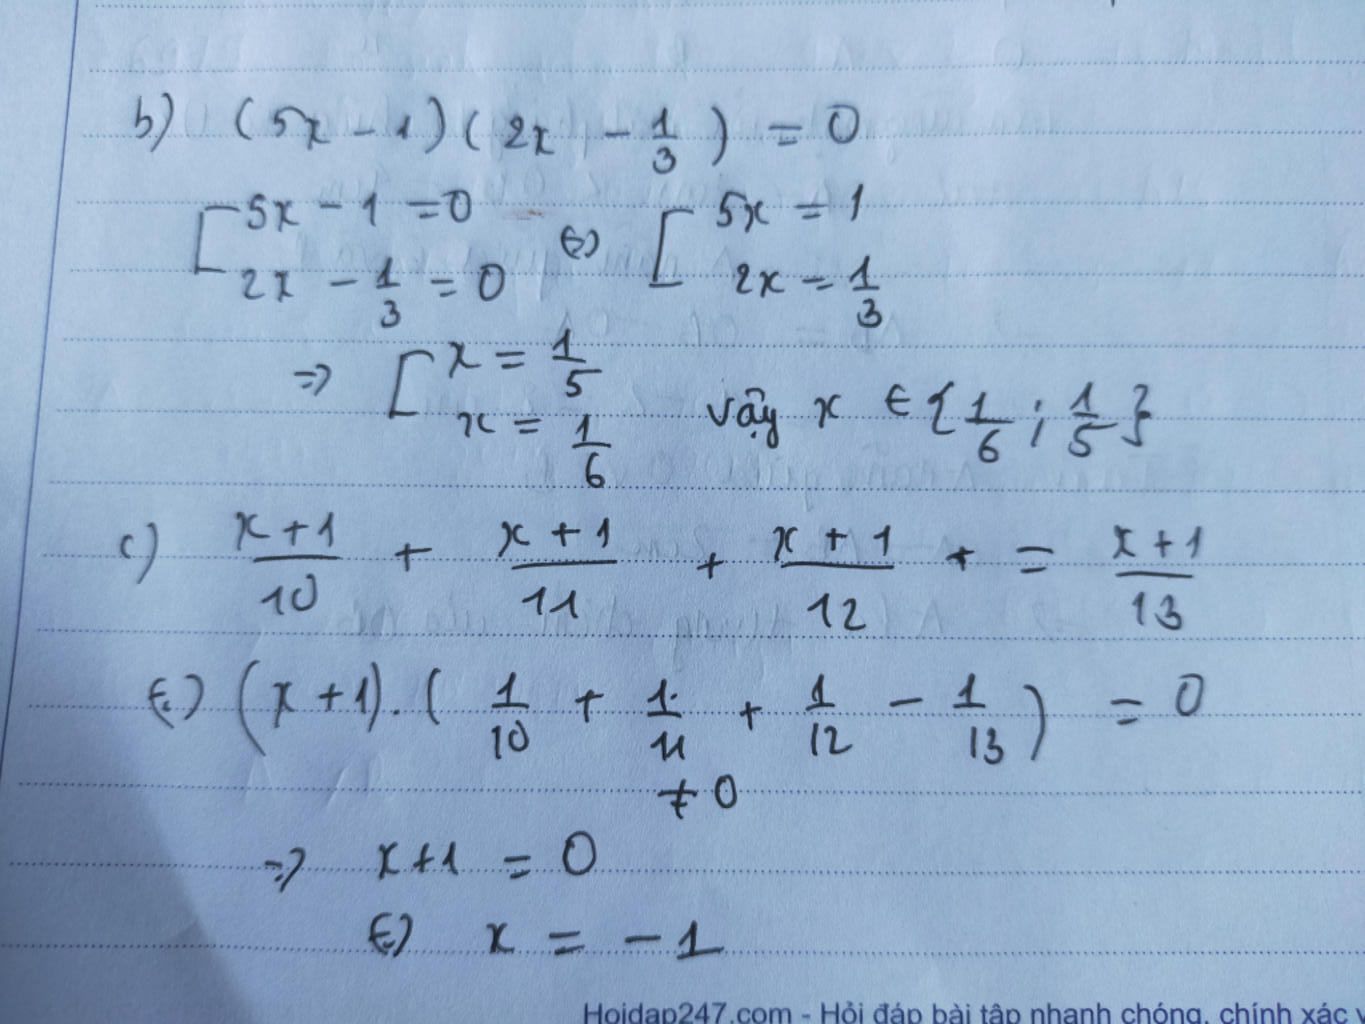 b) (5x - 1)(2x - 1/3) = 0
[ 5x - 1 = 0 ⇔ [ 5x = 1
2x - 1/3 = 0 2x = 1/3
=> [ x = 1/5
x = 1/6 vậy x ∈ {1/6 ; 1/5}
c) (x+1)/10 + (x+1)/11 + (x+1)/12 + = (x+1)/13
⇔ (x+1).(1/10 + 1/11 + 1/12 - 1/13) = 0
≠ 0
=> x+1 = 0
⇔ x = -1
Hoidap247.com - Hỏi đáp bài tập nhanh chóng, chính xác